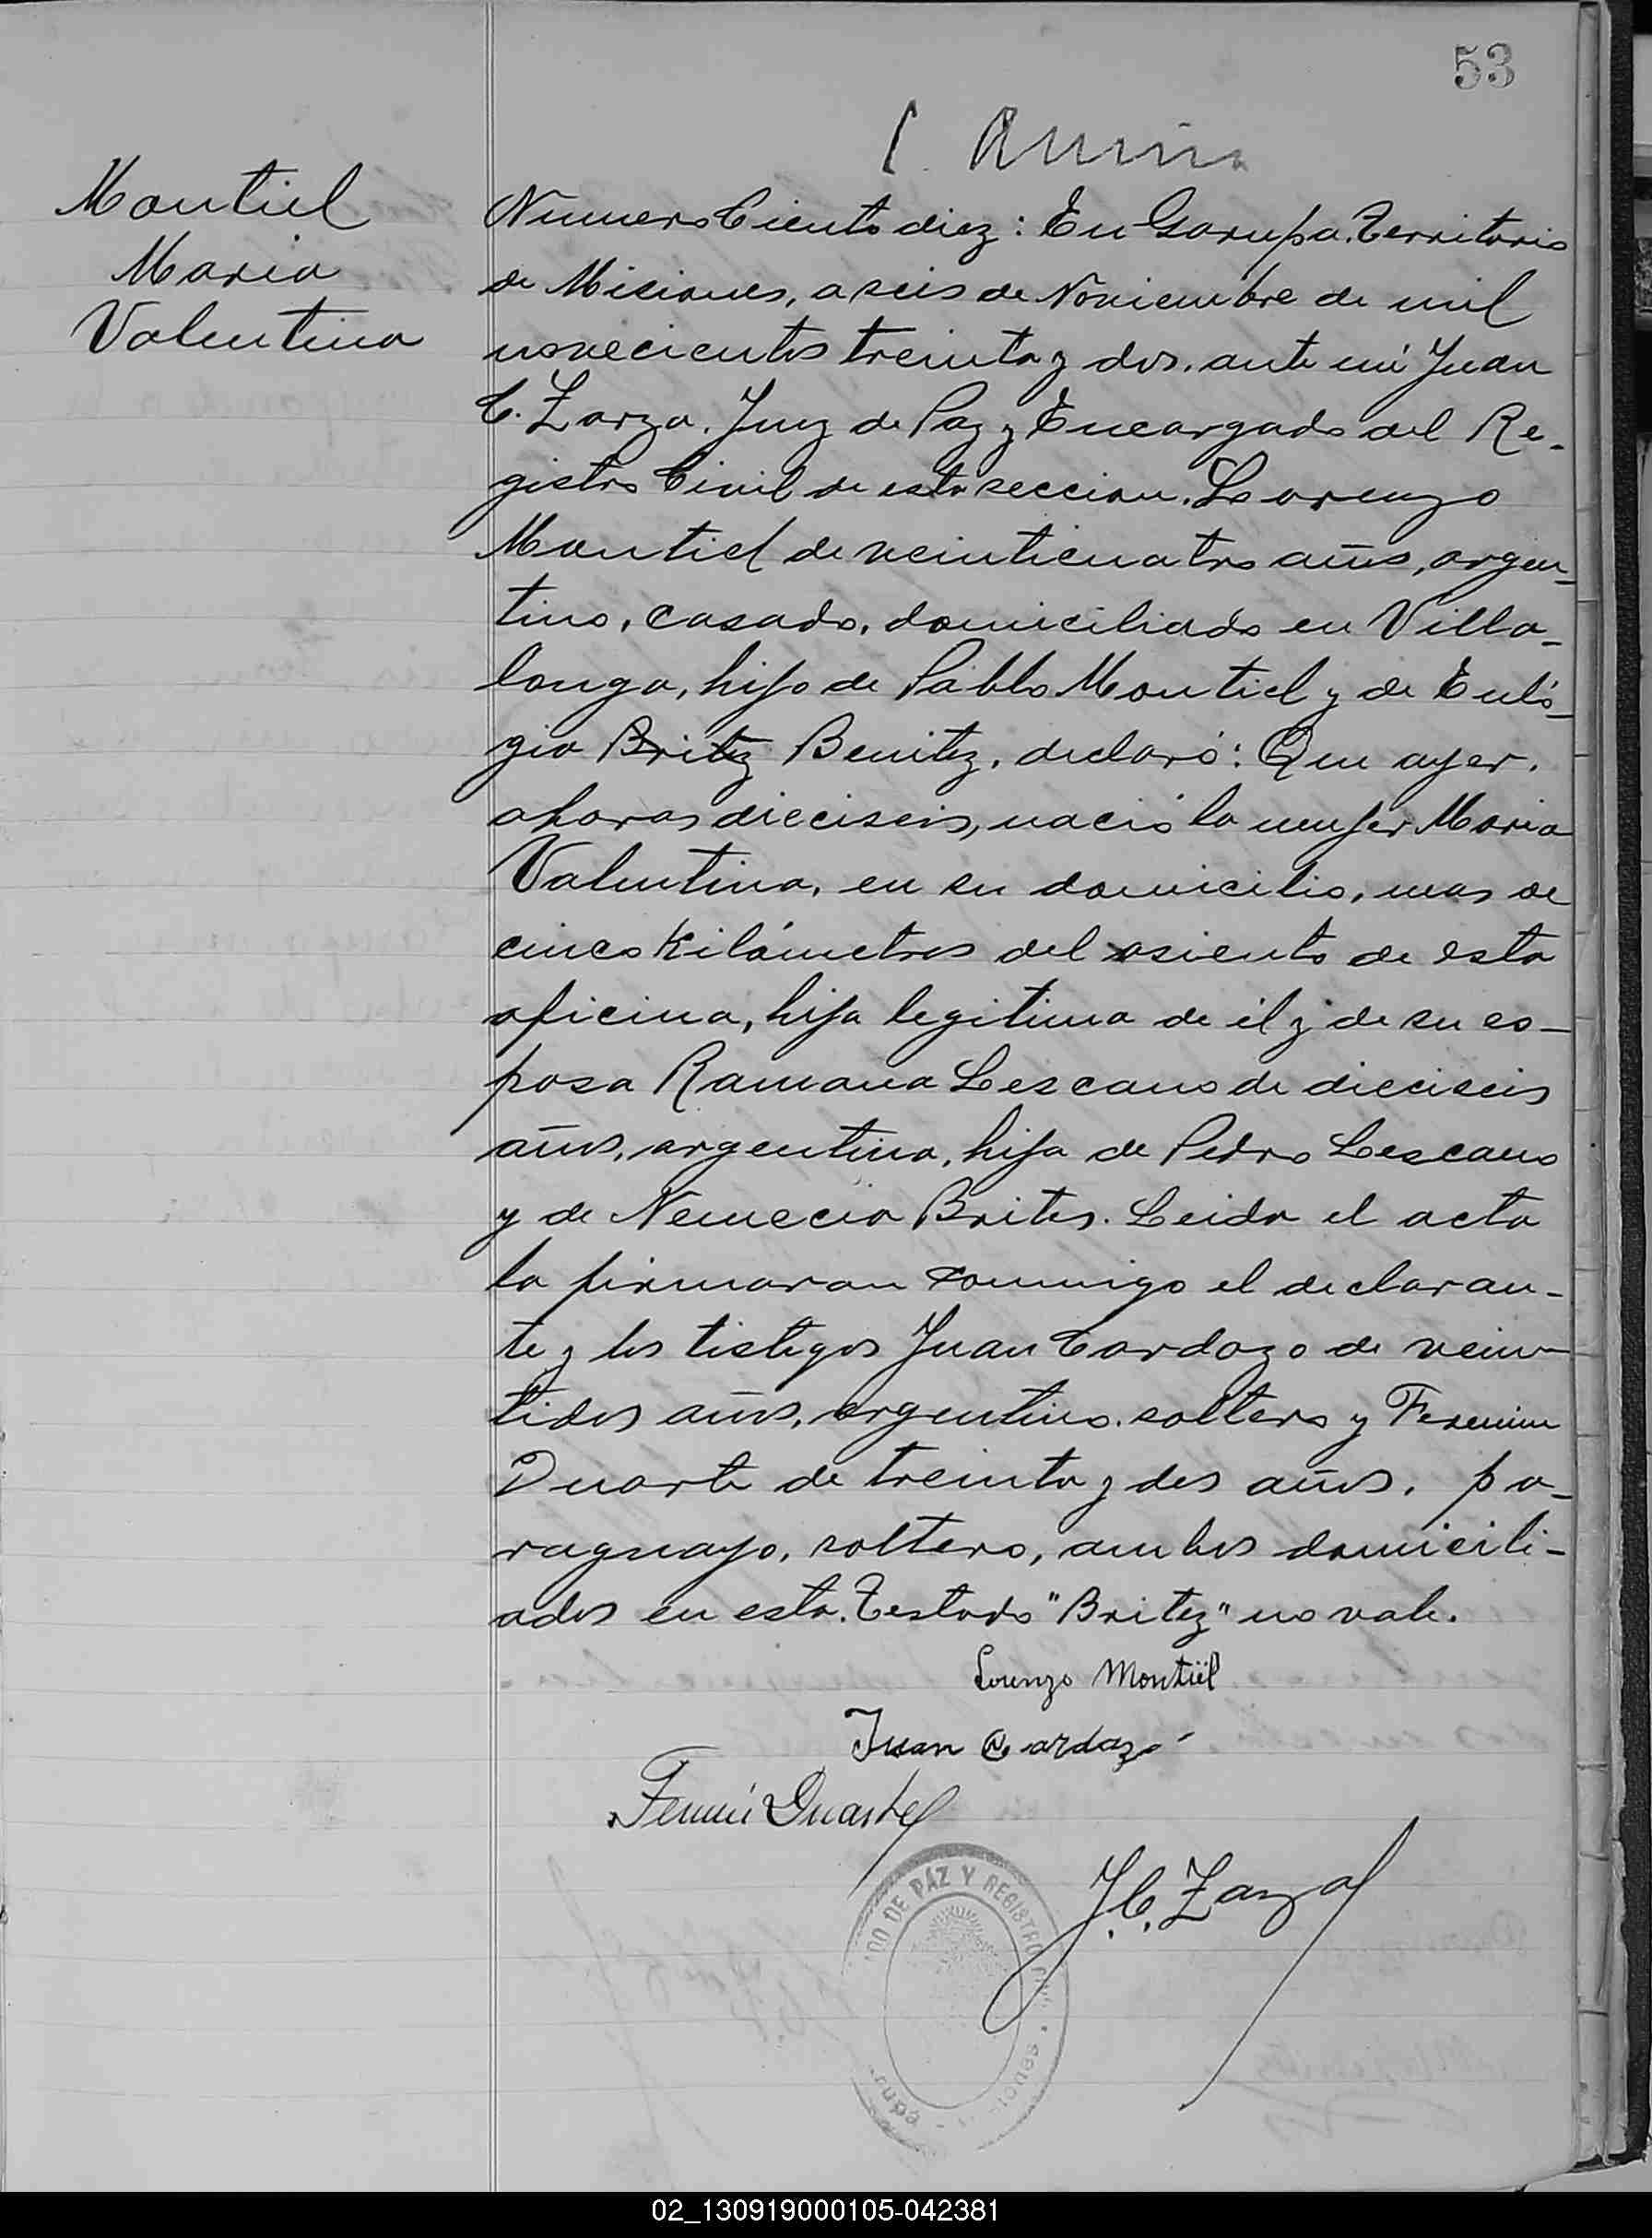 53
Montiel
Maria
Valentina
Numero Ciento diez: En Garupa. Territorio
de Misiones, a seis de Noviembre de mil
novecientos treinta y dos. ante mi Juan
C. Zarza. Juez de Paz y Encargado del Re-
gistro Civil de esta seccion. Lorenzo
Montiel de veinticuatro años, argen-
tino, casado, domiciliado en Villa-
longa, hijo de Pablo Montiel y de Euló-
gia Britez Benitez, declaró: Que ayer.
a horas dieciseis, nació la mujer Maria
Valentina, en su domicilio, mas de
cinco kilómetros del asiento de esta
oficina, hija legitima de él y de su es-
posa Ramona Lescano de dieciseis
años, argentina, hija de Pedro Lescano
y de Nemecia Brites. Leida el acta
la firmaran conmigo el declaran-
te y los tistegos Juan Cardozo de vein-
tidos años, argentino. soltero y Feremin
Duarte de treinta y dos años. pa-
raguayo, soltero, ambos domicili-
ados en esta. Testado "Britez" no vale.
Lorenzo Montiel
Juan Cardozo
Fermin Duarte
J. C. Zarza
DO DE PÁZ Y REGISTRO
rupá
02_130919000105-042381